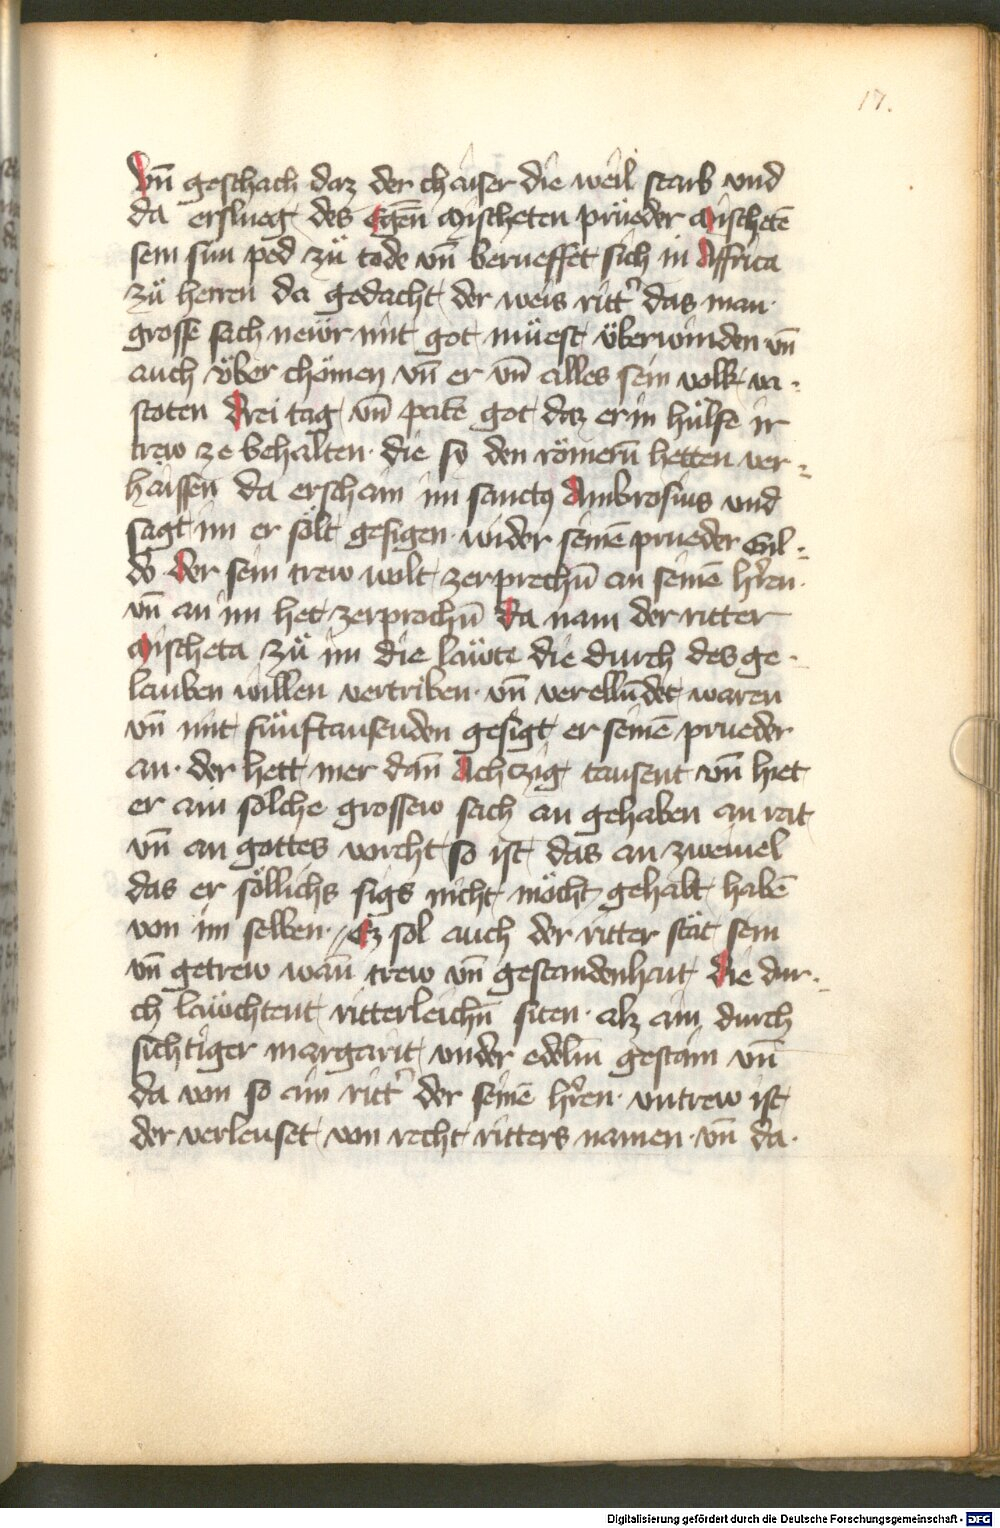 17.
Vn̄ geschach daz der chaiser die weil starb vnd
da erslueg des Egen̄ Mischeten prüeder Mischetē
sein sun ped zů tode vn̄ berueffet sich in Affrica
zů herren da gedacht der weis ritt' das man
grosse sach newr mit got müest überwinden vn̄
auch über chömen vn̄ er vn̄ alles sein volk va-
stoten Drei tag vn̄ pate got daz er in hülfe ir
trew ze behalten · die so den römern̄ hetten ver-
haissen da erschain im sanctus Ambrosius vnd
sagt im er sölt gesigen · wider seinē prueder Gil-
do Der sein trew wolt zerprechn̄ an seinē h'ren ·
vn̄ an im het zerprochn̄ Da nam der ritter
Mischeta zů im die läwte die durch des ge-
lauben willen vertriben · vn̄ verellūdet waren
vn̄ mit fünftausenden gesigt er seinē prueder
an · der hett mer dan̄ Achczig tausent vn̄ hiet
er ain solche grossew sach an gehaben an rat
vn̄ an gottes vorcht so ist das an zweiuel
das er söllichs sigs nicht möcht gehabt habē
von im selben · Ez sol auch der ritter stät sein
vn̄ getrew wan̄ trew vn̄ gestandenhait Die dur-
ch läwchtent ritterleichn̄ siten · alz ain durch
sichtiger margarit vnder edelm gestain vn̄
da von so ain ritt' der seinē h'ren · vntrew ist
der verleuset von recht ritters namen · vn̄ da ·
Digitalisierung gefördert durch die Deutsche Forschungsgemeinschaft - DFG